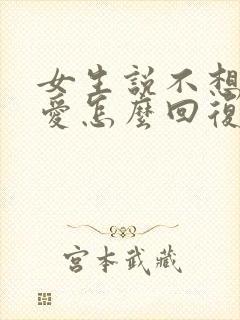 女生説不想
愛怎麼回復
宮本武藏